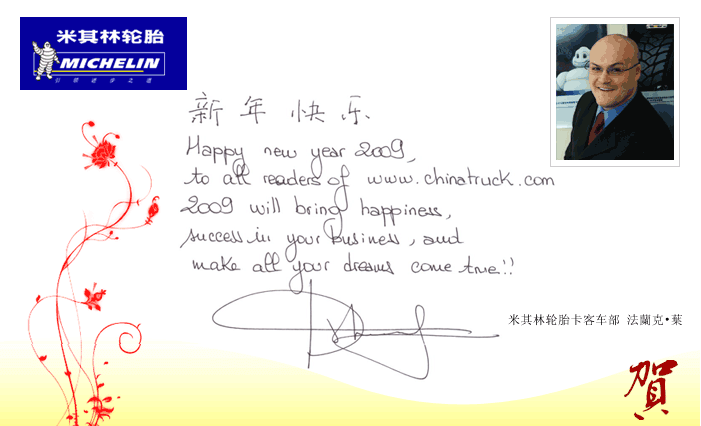 米其林轮胎
MICHELIN
引领进步之道
新年快乐
Happy new year 2009,
to all readers of www.chinatruck.com
2009 will bring happiness,
success in your business, and
make all your dreams come true!!
米其林轮胎卡客车部 法蘭克•葉
賀